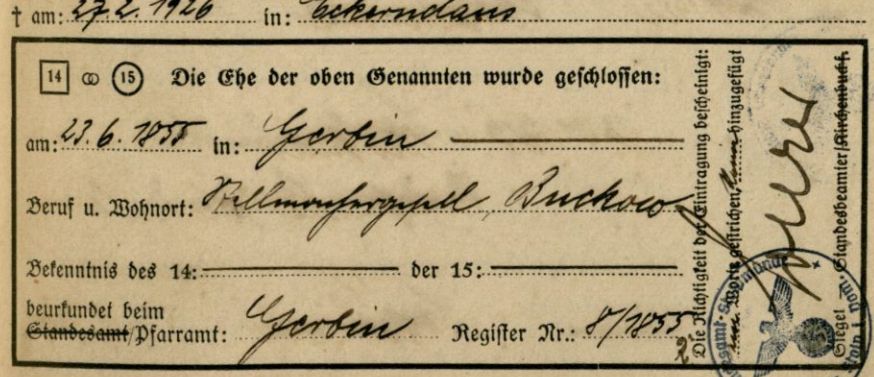 † am: 27.2.1926 in: Eckerndaus
14 ⚭ 15 Die Ehe der oben Genannten wurde geschlossen:
am: 23.6.1855 in: Gerbin
Beruf u. Wohnort: Stellmachergesell, Buckow
Bekenntnis des 14: der 15:
beurkundet beim
Standesamt/Pfarramt: Gerbin Register Nr.: 8/1855
Die Richtigkeit der Eintragung bescheinigt:
Worte gestrichen, hinzugefügt
Siegel — Standesbeamter/Kirchenbuchf.